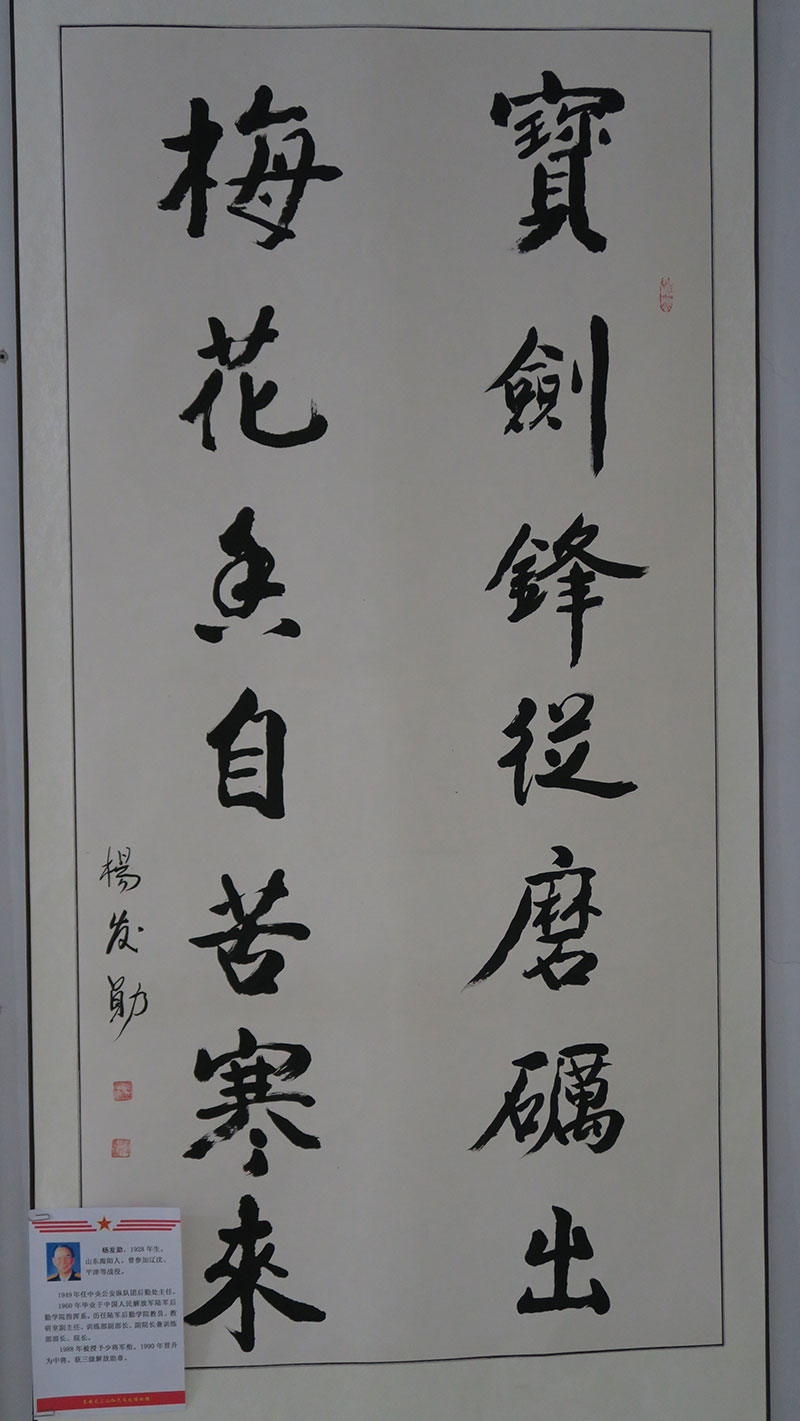 寶劍鋒從磨礪出
梅花香自苦寒來
楊发勛
杨发勋，1928年生，
山东海阳人。曾参加辽沈、
平津等战役。
1949年任中央公安纵队团后勤处主任。
1960年毕业于中国人民解放军陆军后
勤学院指挥系。历任陆军后勤学院教员、教
研室副主任、训练部副部长、副院长兼训练
部部长、院长。
1988年被授予少将军衔。1990年晋升
为中将。获三级解放勋章。